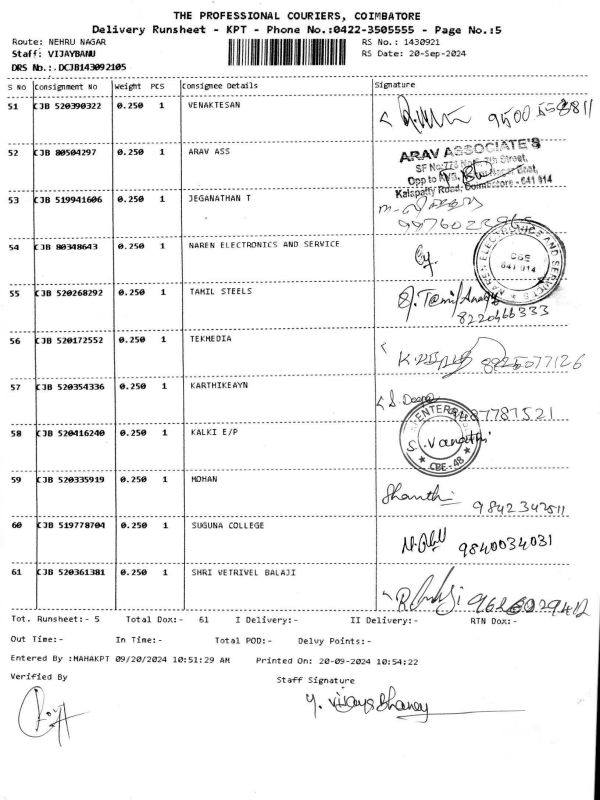 THE PROFESSIONAL COURIERS, COIMBATORE
Delivery Runsheet - KPT - Phone No.:0422-3505555 - Page No.:5
Route: NEHRU NAGAR RS No.: 1430921
Staff: VIJAYBANU RS Date: 20-Sep-2024
DRS No.:.DCJB143092105
S No Consignment No Weight PCS Consignee Details Signature
51 CJB 520390322 0.250 1 VENAKTESAN
52 CJB 80504297 0.250 1 ARAV ASS ARAV ASSOCIATE'S
Kalapatty Road, Coimbatore - 641 014
53 CJB 519941606 0.250 1 JEGANATHAN T
54 CJB 80348643 0.250 1 NAREN ELECTRONICS AND SERVICE NAREN ELECTRONICS AND SERVICES CBE 641 014
55 CJB 520268292 0.250 1 TAMIL STEELS
8220466333
56 CJB 520172552 0.250 1 TEKMEDIA
8825077126
57 CJB 520354336 0.250 1 KARTHIKEAYN S. Deepa 87781521
58 CJB 520416240 0.250 1 KALKI E/P S. Vanathi CBE-48
59 CJB 520335919 0.250 1 MOHAN Shanthi
60 CJB 519778704 0.250 1 SUGUNA COLLEGE 9840034031
61 CJB 520361381 0.250 1 SHRI VETRIVEL BALAJI
Tot. Runsheet:- 5 Total Dox:- 61 I Delivery:- II Delivery:- RTN Dox:-
Out Time:- In Time:- Total POD:- Delvy Points:-
Entered By :MAHAKPT 09/20/2024 10:51:29 AM Printed On: 20-09-2024 10:54:22
Verified By Staff Signature